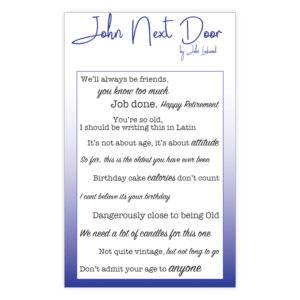 John Next Door
by John Lockwood
We'll always be friends,
you know too much
Job done, Happy Retirement
You're so old,
I should be writing this in Latin
It's not about age, it's about attitude
So far, this is the oldest you have ever been
Birthday cake calories don't count
I cant believe its your birthday
Dangerously close to being Old
We need a lot of candles for this one
Not quite vintage, but not long to go
Don't admit your age to anyone